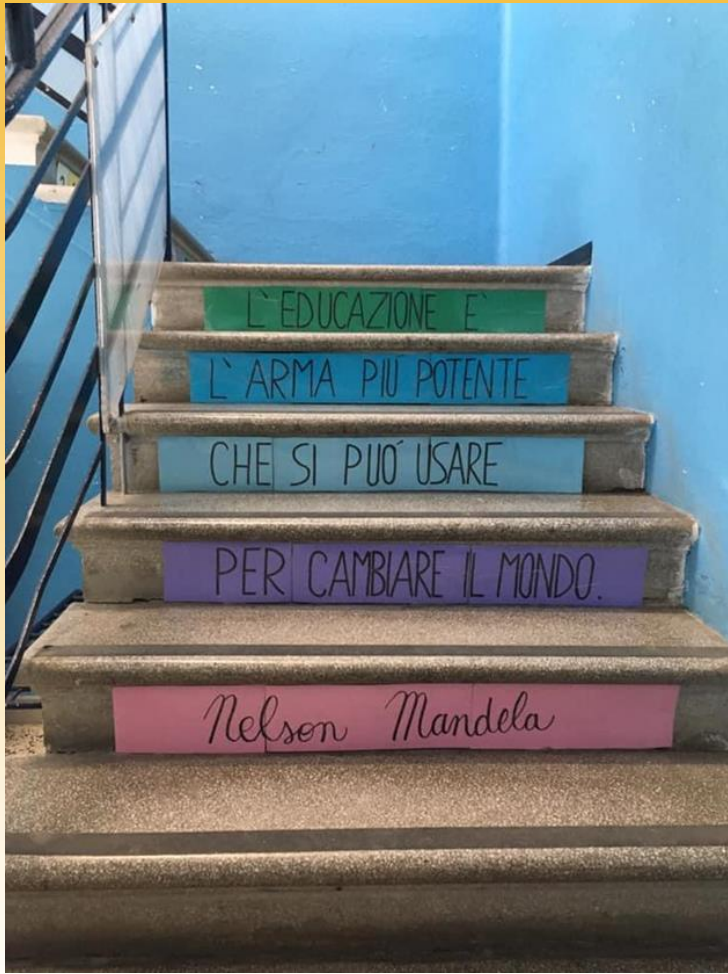 L'EDUCAZIONE È
L'ARMA PIÙ POTENTE
CHE SI PUÓ USARE
PER CAMBIARE IL MONDO.
Nelson Mandela